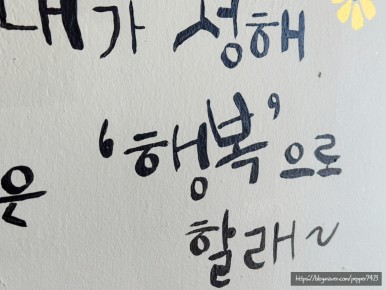 내가 정해
은 '행복'으로
할래~
https://blog.naver.com/pepper7423